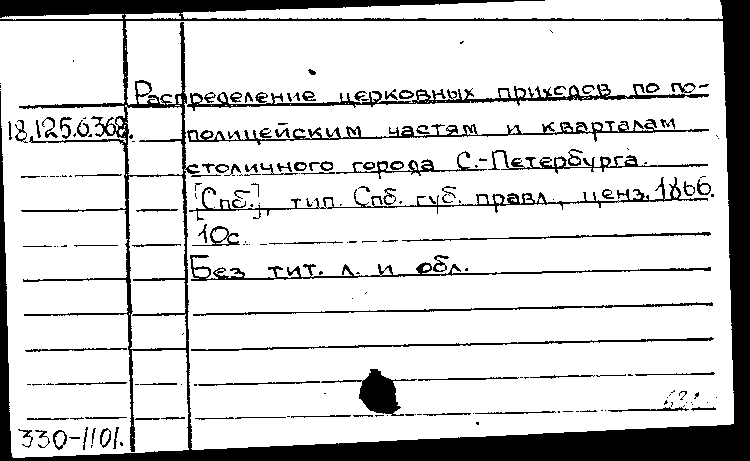 Распределение церковных приходов по по-
18.125.6.368. полицейским частям и кварталам
столичного города С.-Петербурга.
[Спб.], тип. Спб. губ. правл., ценз. 1866.
10с.
Без тит. л. и обл.
330-1101.